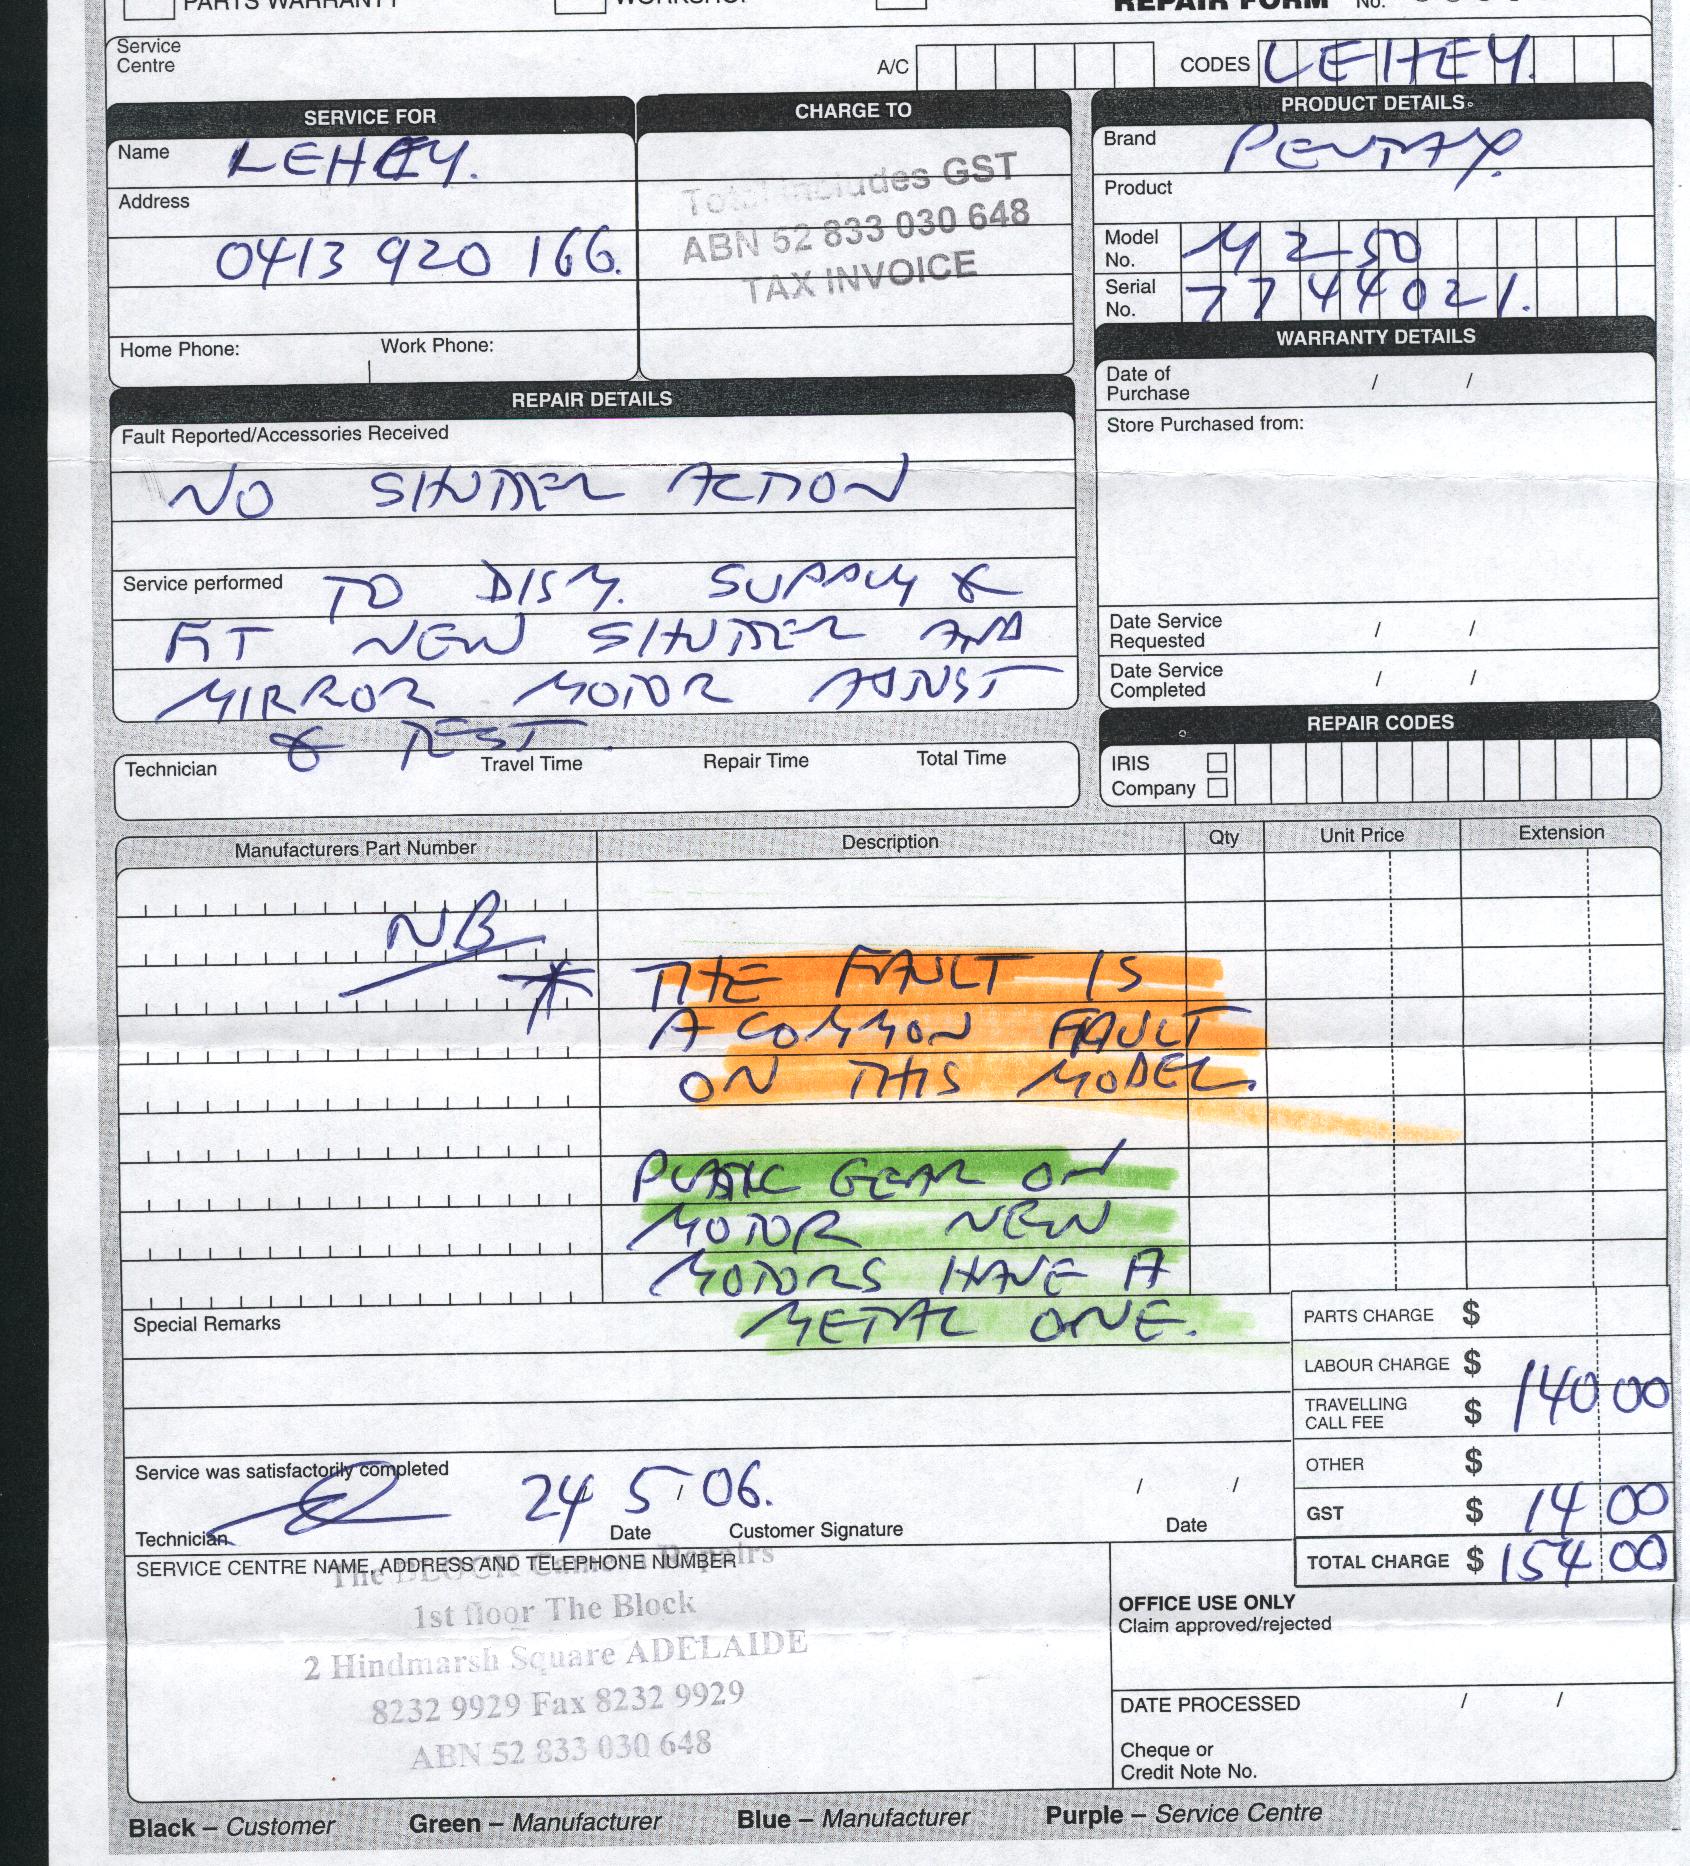 PARTS WARRANTY
WORKSHOP
REPAIR FORM No.
Service Centre
A/C
CODES LEHEY.
SERVICE FOR
Name LEHEY.
Address
0413 920 166.
Home Phone:
Work Phone:
CHARGE TO
Total includes GST
ABN 52 833 030 648
TAX INVOICE
PRODUCT DETAILS
Brand PENTAX.
Product
Model No. MZ-50
Serial No. 7744021.
WARRANTY DETAILS
Date of Purchase / /
Store Purchased from:
Date Service Requested / /
Date Service Completed / /
REPAIR DETAILS
Fault Reported/Accessories Received
NO SHUTTER ACTION
Service performed TO DISM. SUPPLY &
FIT NEW SHUTTER AND
MIRROR MOTOR ADJUST
& TEST.
Technician
Travel Time
Repair Time
Total Time
REPAIR CODES
IRIS
Company
Manufacturers Part Number
Description
Qty
Unit Price
Extension
NB
* THE FAULT IS
A COMMON FAULT
ON THIS MODEL.
PLASTIC GEAR ON
MOTOR NEW
MOTORS HAVE A
METAL ONE.
Special Remarks
PARTS CHARGE $
LABOUR CHARGE $
140 00
TRAVELLING CALL FEE $
OTHER $
GST $ 14 00
TOTAL CHARGE $ 154 00
Service was satisfactorily completed
24 5 06.
/ /
Technician
Date
Customer Signature
Date
SERVICE CENTRE NAME, ADDRESS AND TELEPHONE NUMBER
The BLOCK Camera Repairs
1st floor The Block
2 Hindmarsh Square ADELAIDE
8232 9929 Fax 8232 9929
ABN 52 833 030 648
OFFICE USE ONLY
Claim approved/rejected
DATE PROCESSED / /
Cheque or
Credit Note No.
Black – Customer
Green – Manufacturer
Blue – Manufacturer
Purple – Service Centre